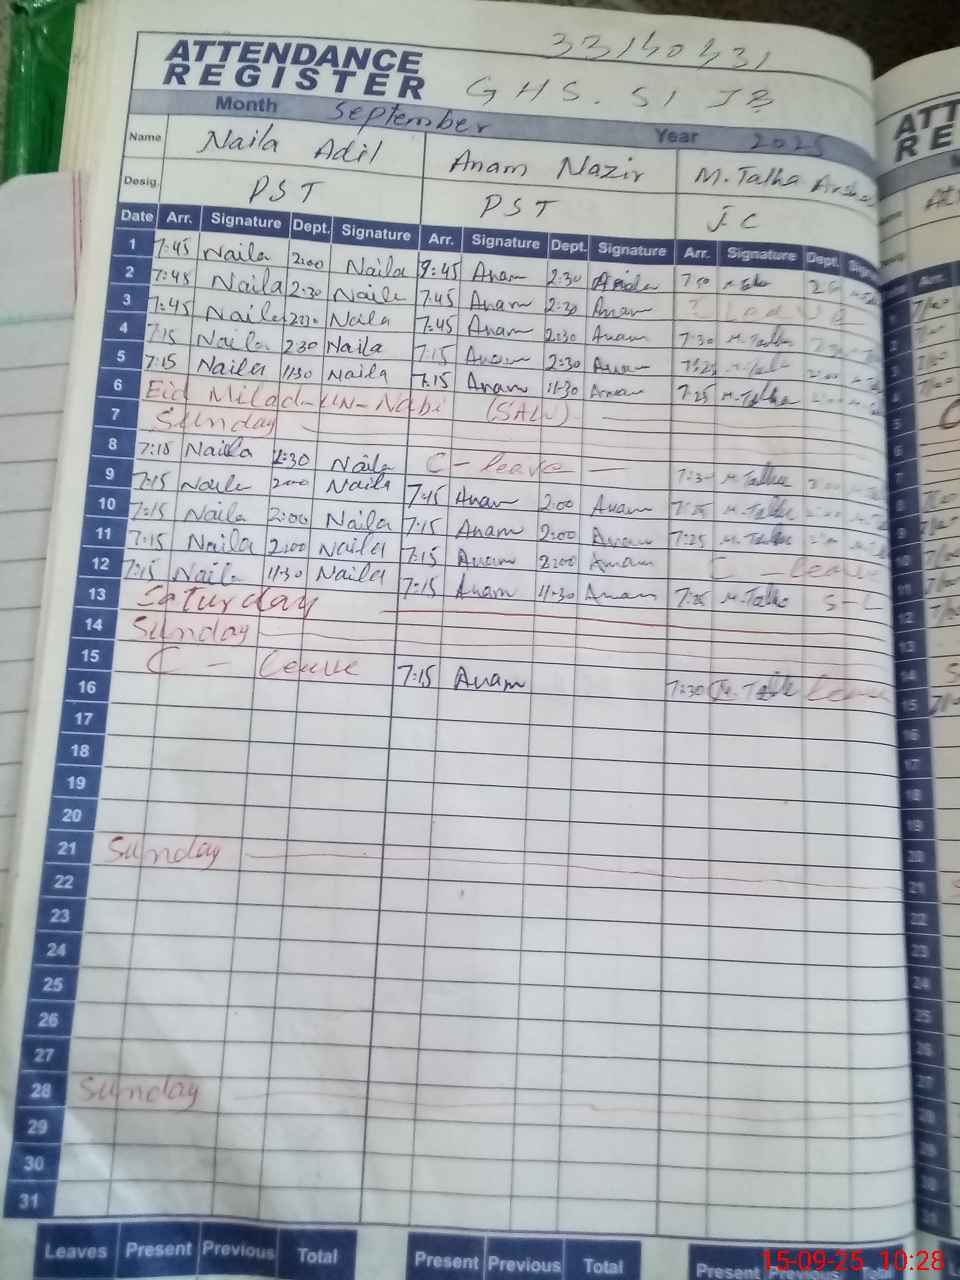 33140431
ATTENDANCE
REGISTER
GHS. 51 JB
Month September Year 2025
Name Naila Adil Anam Nazir M. Talha
Desig. PST PST JC
Date Arr. Signature Dept. Signature Arr. Signature Dept. Signature Arr. Signature Dept.
1 7:45 Naila 2:00 Naila 9:45 Anam 2:30 7:50
2 7:45 Naila 2:30 Naila 7:45 Anam 2:30 Anam
3 7:45 Naila 2:30 Naila 7:45 Anam 2:30 Anam 7:30 M. Talha
4 7:15 Naila 2:30 Naila 7:15 Anam 2:30 Anam 7:25 M. Talha
5 7:15 Naila 11:30 Naila 7:15 Anam 11:30 Anam 7:25 M. Talha
6 Eid Milad-un-Nabi (SAW)
7 Sunday
8 7:15 Naila 2:30 Naila C - leave M. Talha
9 7:15 Naila 2:00 Naila 7:15 Anam 2:00 Anam 7:25 M. Talha
10 7:15 Naila 2:00 Naila 7:15 Anam 2:00 Anam 7:25 M. Talha
11 7:15 Naila 2:00 Naila 7:15 Anam 2:00 Anam C - leave
12 7:15 Naila 11:30 Naila 7:15 Anam 11:30 Anam 7:25 M. Talha S-L
13 Saturday
14 Sunday
15 C - leave 7:15 Anam 7:30 M. Talha leave
16
17
18
19
20
21 Sunday
22
23
24
25
26
27
28 Sunday
29
30
31
Leaves Present Previous Total Present Previous Total Present Previous
15-09-25 10:28